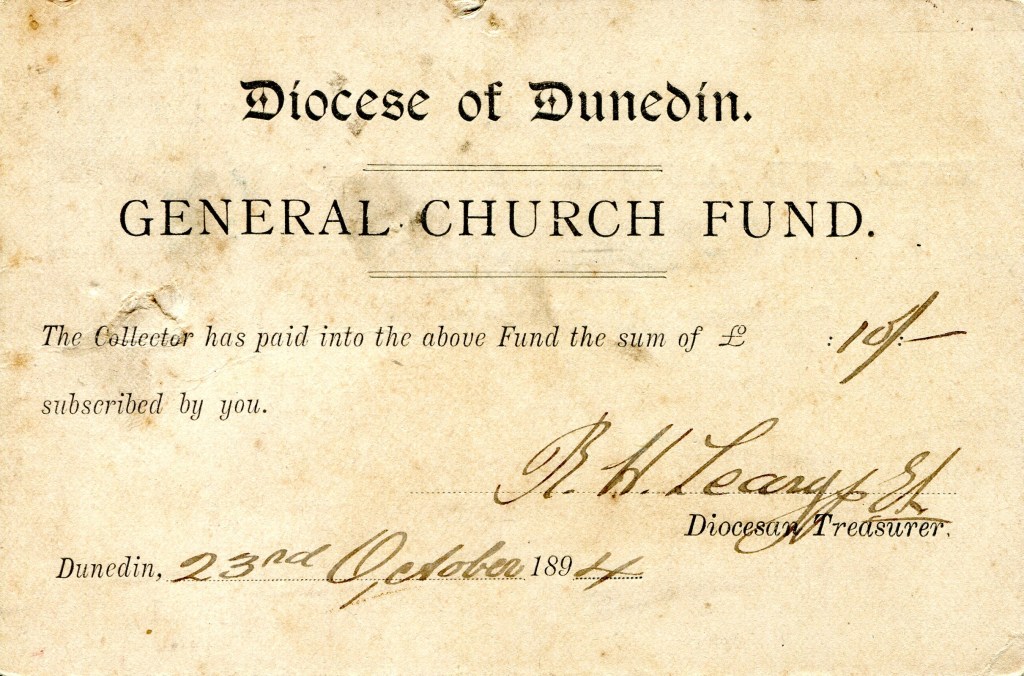 Diocese of Dunedin.
GENERAL CHURCH FUND.
The Collector has paid into the above Fund the sum of £ : 10/- :
subscribed by you.
R. H. Leary
Diocesan Treasurer.
Dunedin, 23rd October 1894